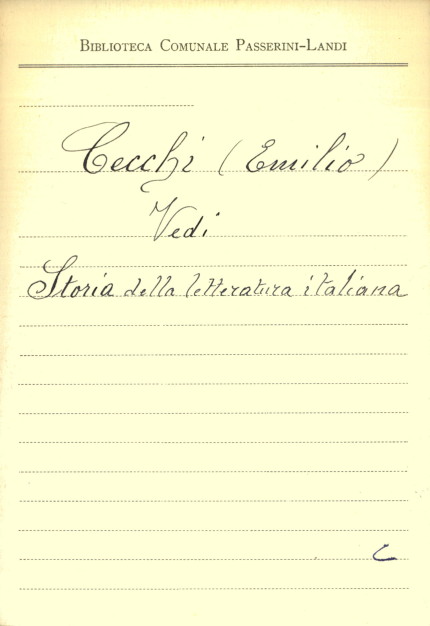 BIBLIOTECA COMUNALE PASSERINI-LANDI
Cecchi (Emilio)
Vedi
Storia della letteratura italiana
C